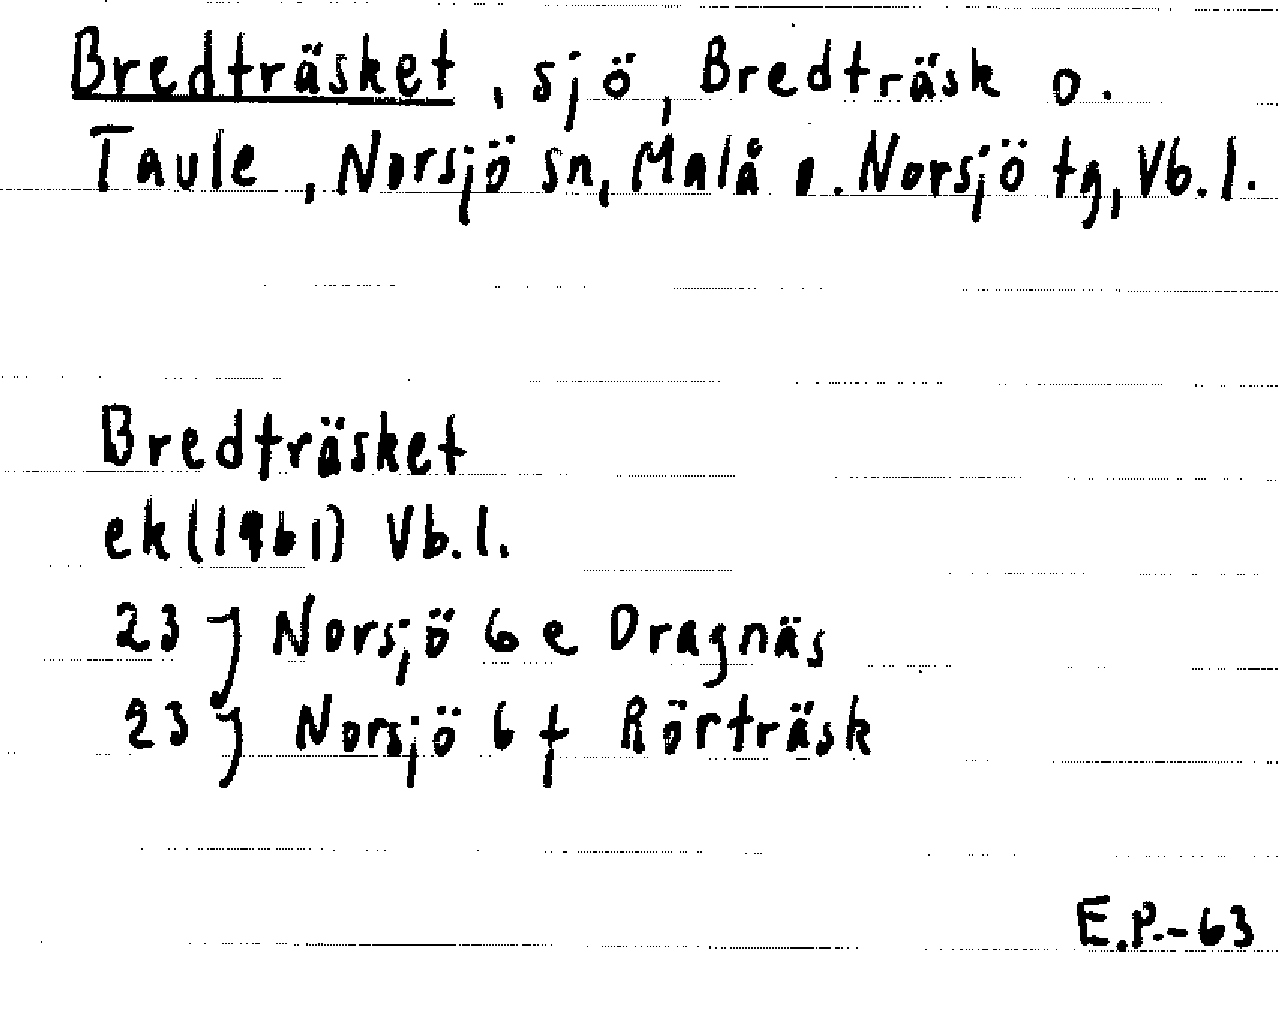 Bredträsket, sjö, Bredträsk o.
Taule, Norsjö sn, Malå o. Norsjö tg, Vb. l.
Bredträsket
ek (1961) Vb. l.
23 J Norsjö 6 e Dragnäs
23 J Norsjö 6 f Rörträsk
E.P.-63